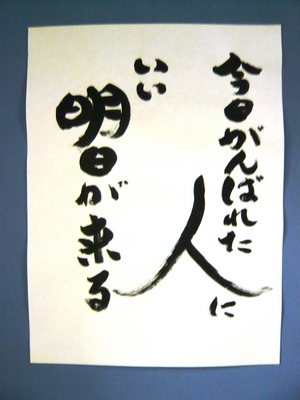 今日がんばれた
人に
いい
明日が来る